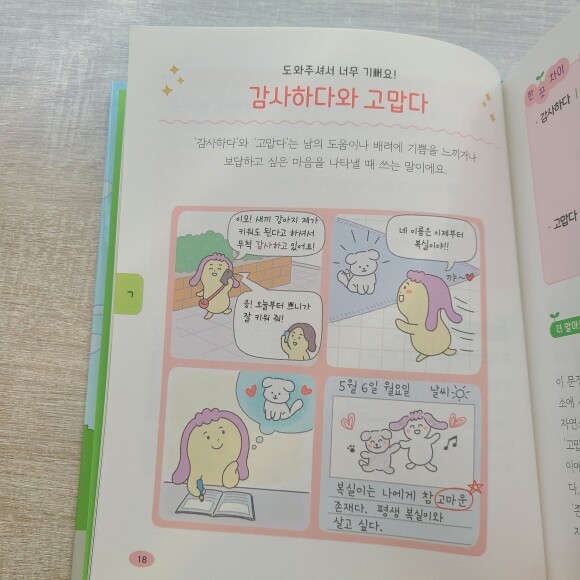 도와주셔서 너무 기뻐요!
감사하다와 고맙다
'감사하다'와 '고맙다'는 남의 도움이나 배려에 기쁨을 느끼거나
보답하고 싶은 마음을 나타낼 때 쓰는 말이에요.
이모! 새끼 강아지 제가
키워도 된다고 하셔서
무척 감사하고 있어요!
응! 오늘부터 쁘니가
잘 키워 줘!
네 이름은 이제부터
복실이야!!
꺄~
5월 6일 월요일 날씨
복실이는 나에게 참 고마운
존재다. 평생 복실이와
살고 싶다.
ㄱ
18
한 끗 차이
감사하다
고맙다
더 알아
이 문
소에
자연
'고맙
이에
다.
'존
지